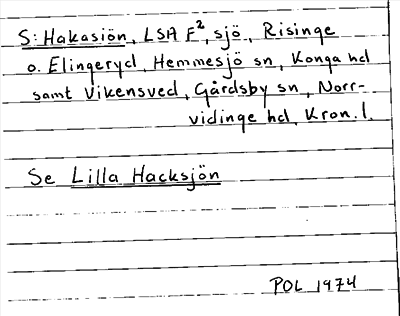 S: Hakasiön, LSA F², sjö, Risinge
o. Elingeryd, Hemmesjö sn, Konga hd
samt Vikensved, Gårdsby sn, Norr-
vidinge hd, Kron. l.
Se Lilla Hacksjön
POL 1974